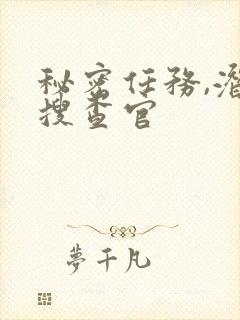 秘密任務,潛
搜查官
夢千凡